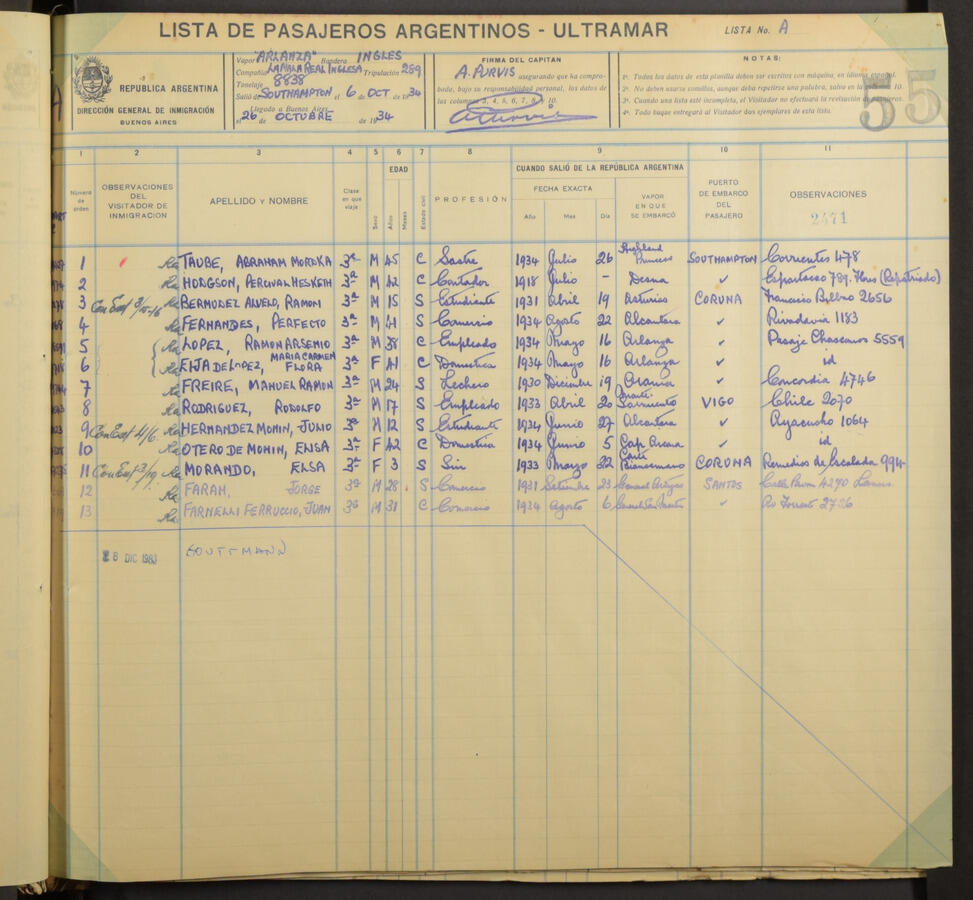 LISTA DE PASAJEROS ARGENTINOS - ULTRAMAR LISTA No. A
REPUBLICA ARGENTINA
DIRECCIÓN GENERAL DE INMIGRACIÓN
BUENOS AIRES
Vapor "ARLANZA" Bandera INGLES
Compañía LA MALA REAL INGLESA Tripulación 259
Tonelaje 8838
Salió de SOUTHAMPTON el 6 de OCT de 1934
Llegado a Buenos Aires
el 26 de OCTUBRE de 1934
FIRMA DEL CAPITAN
A. PURVIS asegurando que ha comprobado, bajo su responsabilidad personal, los datos de
las columnas 3, 4, 6, 7, 8, 9 y 10.
NOTAS:
1ª. Todos los datos de esta planilla deben ser escritos con máquina, en idioma español.
2ª. No deben usarse comillas, aunque deba repetirse una palabra, salvo en la
3ª. Cuando una lista esté incompleta, el Visitador no efectuará la revisación de
4ª. Todo buque entregará al Visitador dos ejemplares de esta lista.
55
1 2 3 4 5 6 7 8 9 10 11
Número de orden
OBSERVACIONES DEL VISITADOR DE INMIGRACIÓN
APELLIDO Y NOMBRE
Clase en que viaja
Sexo
EDAD
Años
Meses
Estado civil
PROFESIÓN
CUANDO SALIÓ DE LA REPÚBLICA ARGENTINA
FECHA EXACTA
Año Mes Día
VAPOR EN QUE SE EMBARCÓ
PUERTO DE EMBARCO DEL PASAJERO
OBSERVACIONES
2471
1 TAUBE, ABRAHAM 3ª M 45 C Sastre 1934 Julio 26 Highland Princess SOUTHAMPTON Corrientes 478
2 HODGSON, PERCIVAL HESKETH 3ª M 42 C Contador 1918 Julio - Desna ✓ Espartaco 789. Flores (Repatriado)
3 BERMUDEZ ALVELO, RAMON 3ª M 15 S Estudiante 1931 Abril 19 Asturias CORUNA Francisco Bilbao 2656
4 FERNANDES, PERFECTO 3ª M 41 S Comercio 1934 Agosto 22 Alcantara ✓ Rivadavia 1183
5 LOPEZ, RAMON ARSENIO 3ª M 38 C Empleado 1934 Mayo 16 Arlanza ✓ Pasaje Chascomus 5559
6 EIJA DE LOPEZ, MARIA CARMEN FLORA 3ª F 41 C Domestica 1934 Mayo 16 Arlanza ✓ id
7 FREIRE, MANUEL RAMON 3ª M 24 S Lechero 1930 Diciembre 19 ✓ Concordia 4746
8 RODRIGUEZ, RODOLFO 3ª M 17 S Empleado 1933 Abril 20 Sarmiento VIGO Chile 2070
9 HERNANDEZ MONIN, JULIO 3ª M 12 S Estudiante 1934 Junio 27 Alcantara ✓ Ayacucho 1064
10 OTERO DE MONIN, ELISA 3ª F 42 C Domestica 1934 Junio 5 Cap Arcona ✓ id
11 MORANDO, ELSA 3ª F 3 S Sin 1933 Mayo 22 Conte Biancamano CORUNA Remedios de Escalada 994
12 FARAH, JORGE 3ª M 28 S Comercio 1931 Setiembre 23 SANTOS 4290
13 FARNELLI FERRUCCIO, JUAN 3ª M 31 C Comercio 1934 Agosto 6 General San Martin ✓ 2726
DIC 1983